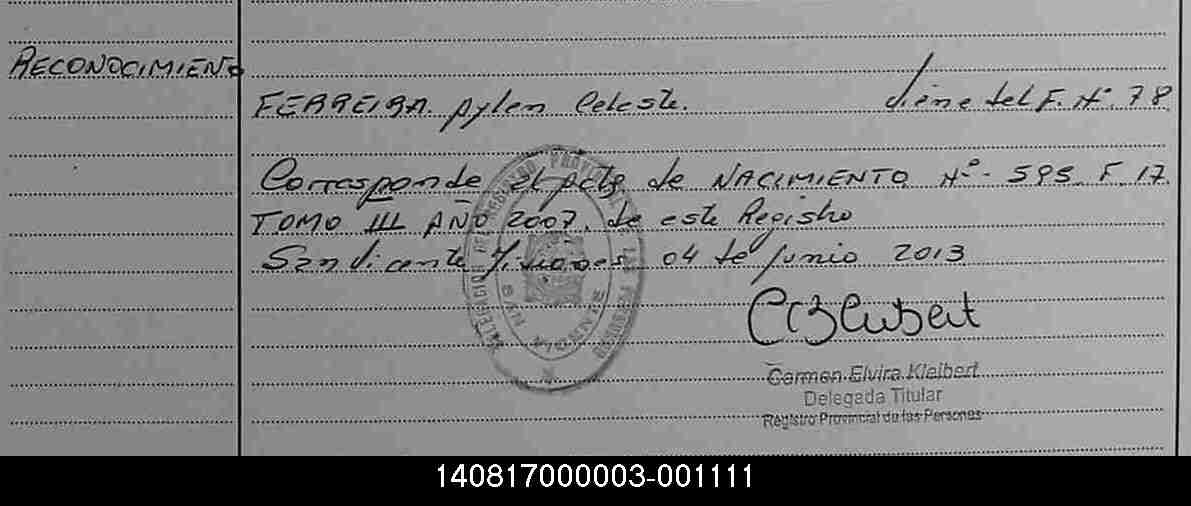 RECONOCIMIENTO
FERREIRA Aylen Celeste. viene del F. Nº 78
Corresponde al acta de NACIMIENTO Nº 595 F 17
TOMO III AÑO 2007, de este Registro
San Vicente Misiones 04 de Junio 2013
DELEGACION DEL REGISTRO PROVINCIAL DE LAS PERSONAS
SAN VICENTE
Carmen Elvira Kleibert
Delegada Titular
Registro Provincial de las Personas
140817000003-001111